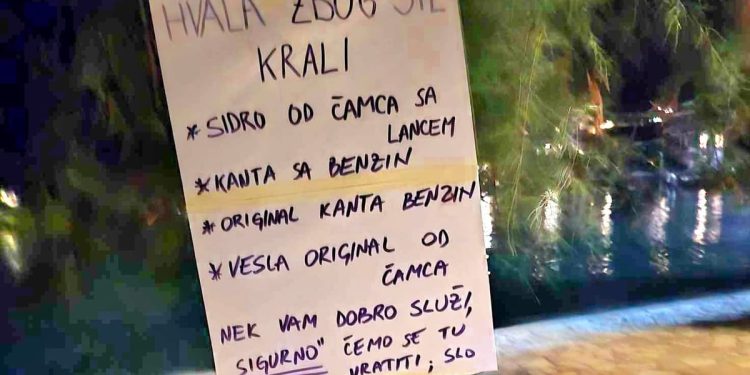 HVALA ZBOG STE
KRALI
* SIDRO OD ČAMCA SA
LANCEM
* KANTA SA BENZIN
* ORIGINAL KANTA BENZIN
* VESLA ORIGINAL OD
ČAMCA
NEK VAM DOBRO SLUŽI,
SIGURNO" ĆEMO SE TU
VRATITI; SLO